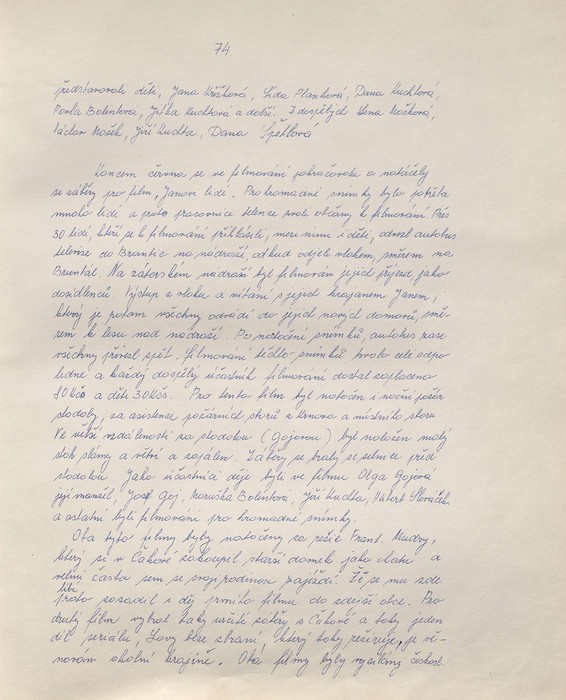 74
představovali děti, Jana Křížková, Lída Planková, Dana Kuchtová,
Pavla Balintová, Jitka Kuchtová a další. Z dospělých Lena Nošková,
Václav Nosek, Jiří Kuchta, Dana Špetlová
Koncem června se ve filmování pokračovalo a natáčely
se záběry pro film, Janovi lidé. Pro hromadné snímky bylo potřeba
mnoho lidí a proto pracovnice televize zvala občany k filmování. Přes
30 lidí, kteří se k filmování přihlásili, mezi nimi i děti, odvezl autobus
televize do Brantic na nádraží, odkud odjeli vlakem, směrem na
Bruntál. Na zátorském nádraží byl filmován jejich příjezd, jako
dosídlenců. Výstup z vlaku a vítání s jejich krajanem Janem,
který je potom všechny odvádí do jejich nových domovů, smě-
rem k lesu nad nádraží. Po natočení snímků, autobus zase
všechny přivezl zpět. Filmování těchto snímků trvalo celé odpo-
ledne a každý dospělý účastník filmování dostal zaplaceno
80 Kčs a děti 30 Kčs. Pro tento film byl natočen i noční požár
stodoly, za asistence požárních sborů z Krnova a místního sboru.
Ve větší vzdálenosti za stodolou (Gojovou) byl natočen malý
stoh slámy a větví a zapálen. Záběry se braly ze silnice před
stodolou. Jako účastníci děje byli ve filmu Olga Gojová
její manžel, Josef Goj, Maruška Balintová, Jiří Kuchta, Hubert Slováček
a ostatní byli filmováni pro hromadné snímky.
Oba tyto filmy byly natočeny za režie Frant. Mudry,
který si v Čakové zakoupil starší domek jako chatu a
velmi často sem se svojí rodinou zajíždí. Že se mu zde
líbí
proto zasadil i děj prvního filmu do zdejší obce. Pro
druhý film vybral taky určité záběry z Čakové a taky jeden
díl seriálu, Lovy beze zbraní, který taky režíruje, je vě-
nován okolní krajině. Oba filmy byly vysílány českosl.